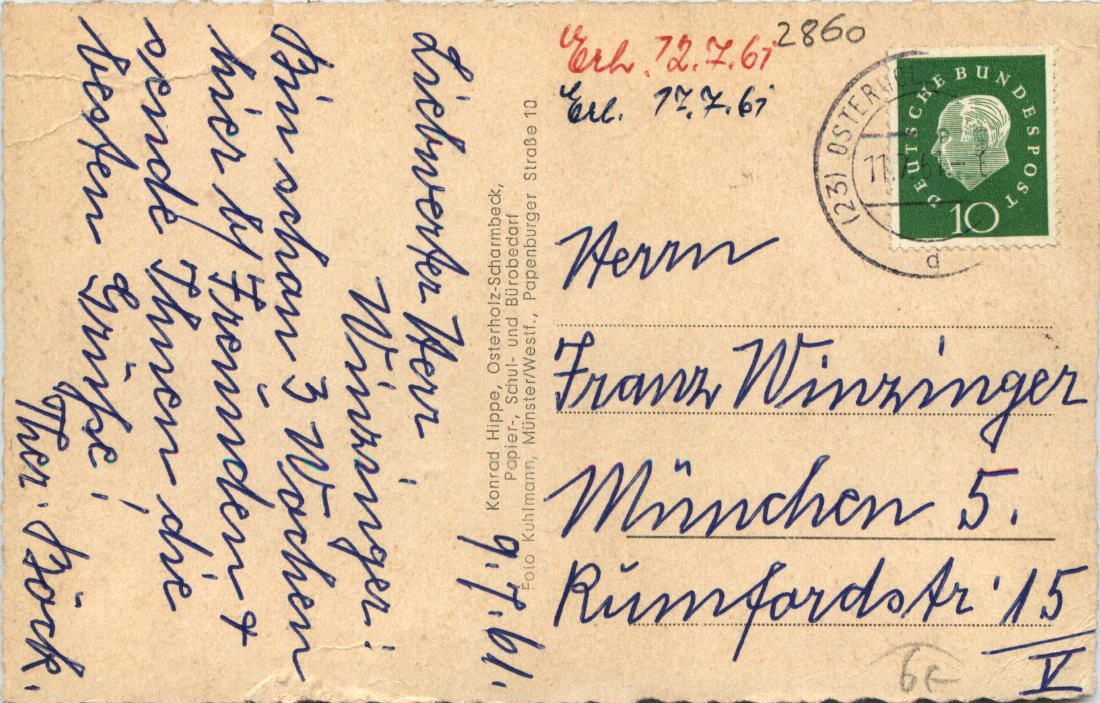 9.7.61.
Liebwerter Herr
Winzinger!
Bin schon 3 Wochen
hier by Freunden +
sende Ihnen die
besten Grüße!
Ther. Böck.
Konrad Hippe, Osterholz-Scharmbeck,
Papier-, Schul- und Bürobedarf
Foto Kuhlmann, Münster/Westf., Papenburger Straße 10
2860
Erh. 12.7.61
Erl. 17.7.61
DEUTSCHE BUNDESPOST
10
(23) OSTERHOL
11.7.61.-
d
Herrn
Franz Winzinger
München 5.
Rumfordstr. 15
V
6€